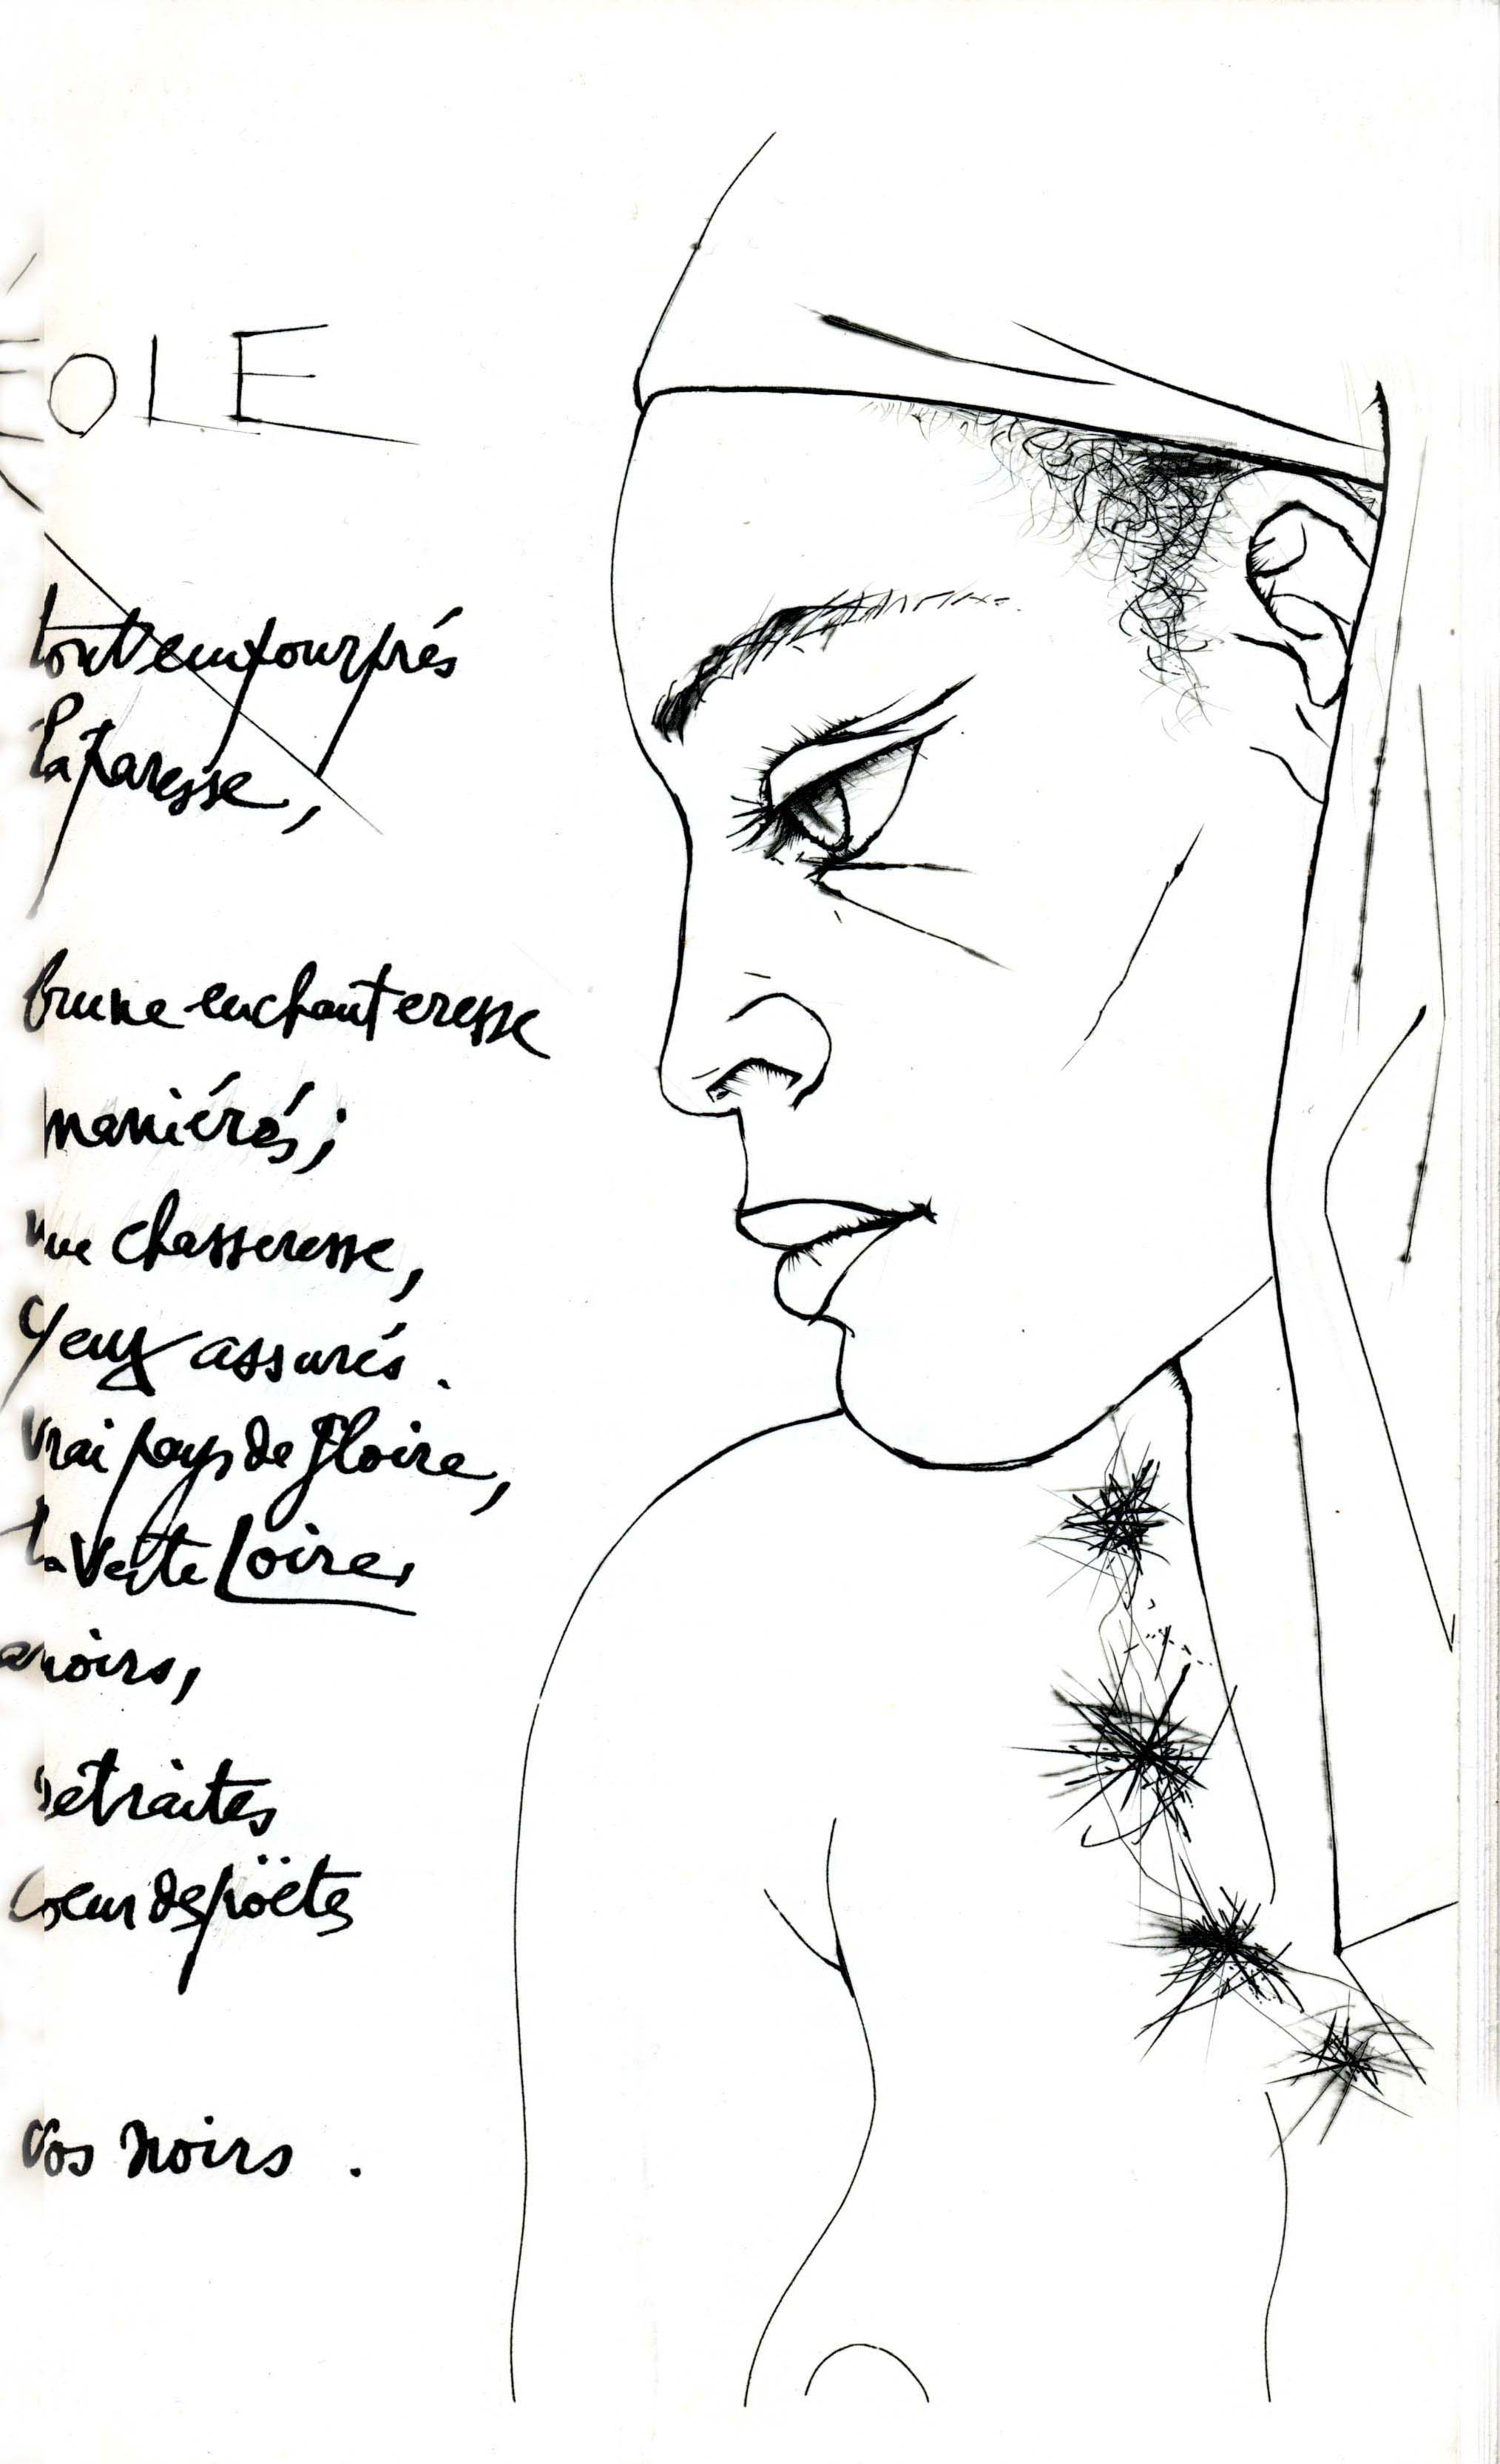 OLE
tout empourprés
la paresse,
brune enchanteresse
maniérés;
chasseresse,
yeux assurés.
Vrai pays de gloire,
la verte Loire,
noirs,
retraites
Coeur de poëtes
Vos noirs.